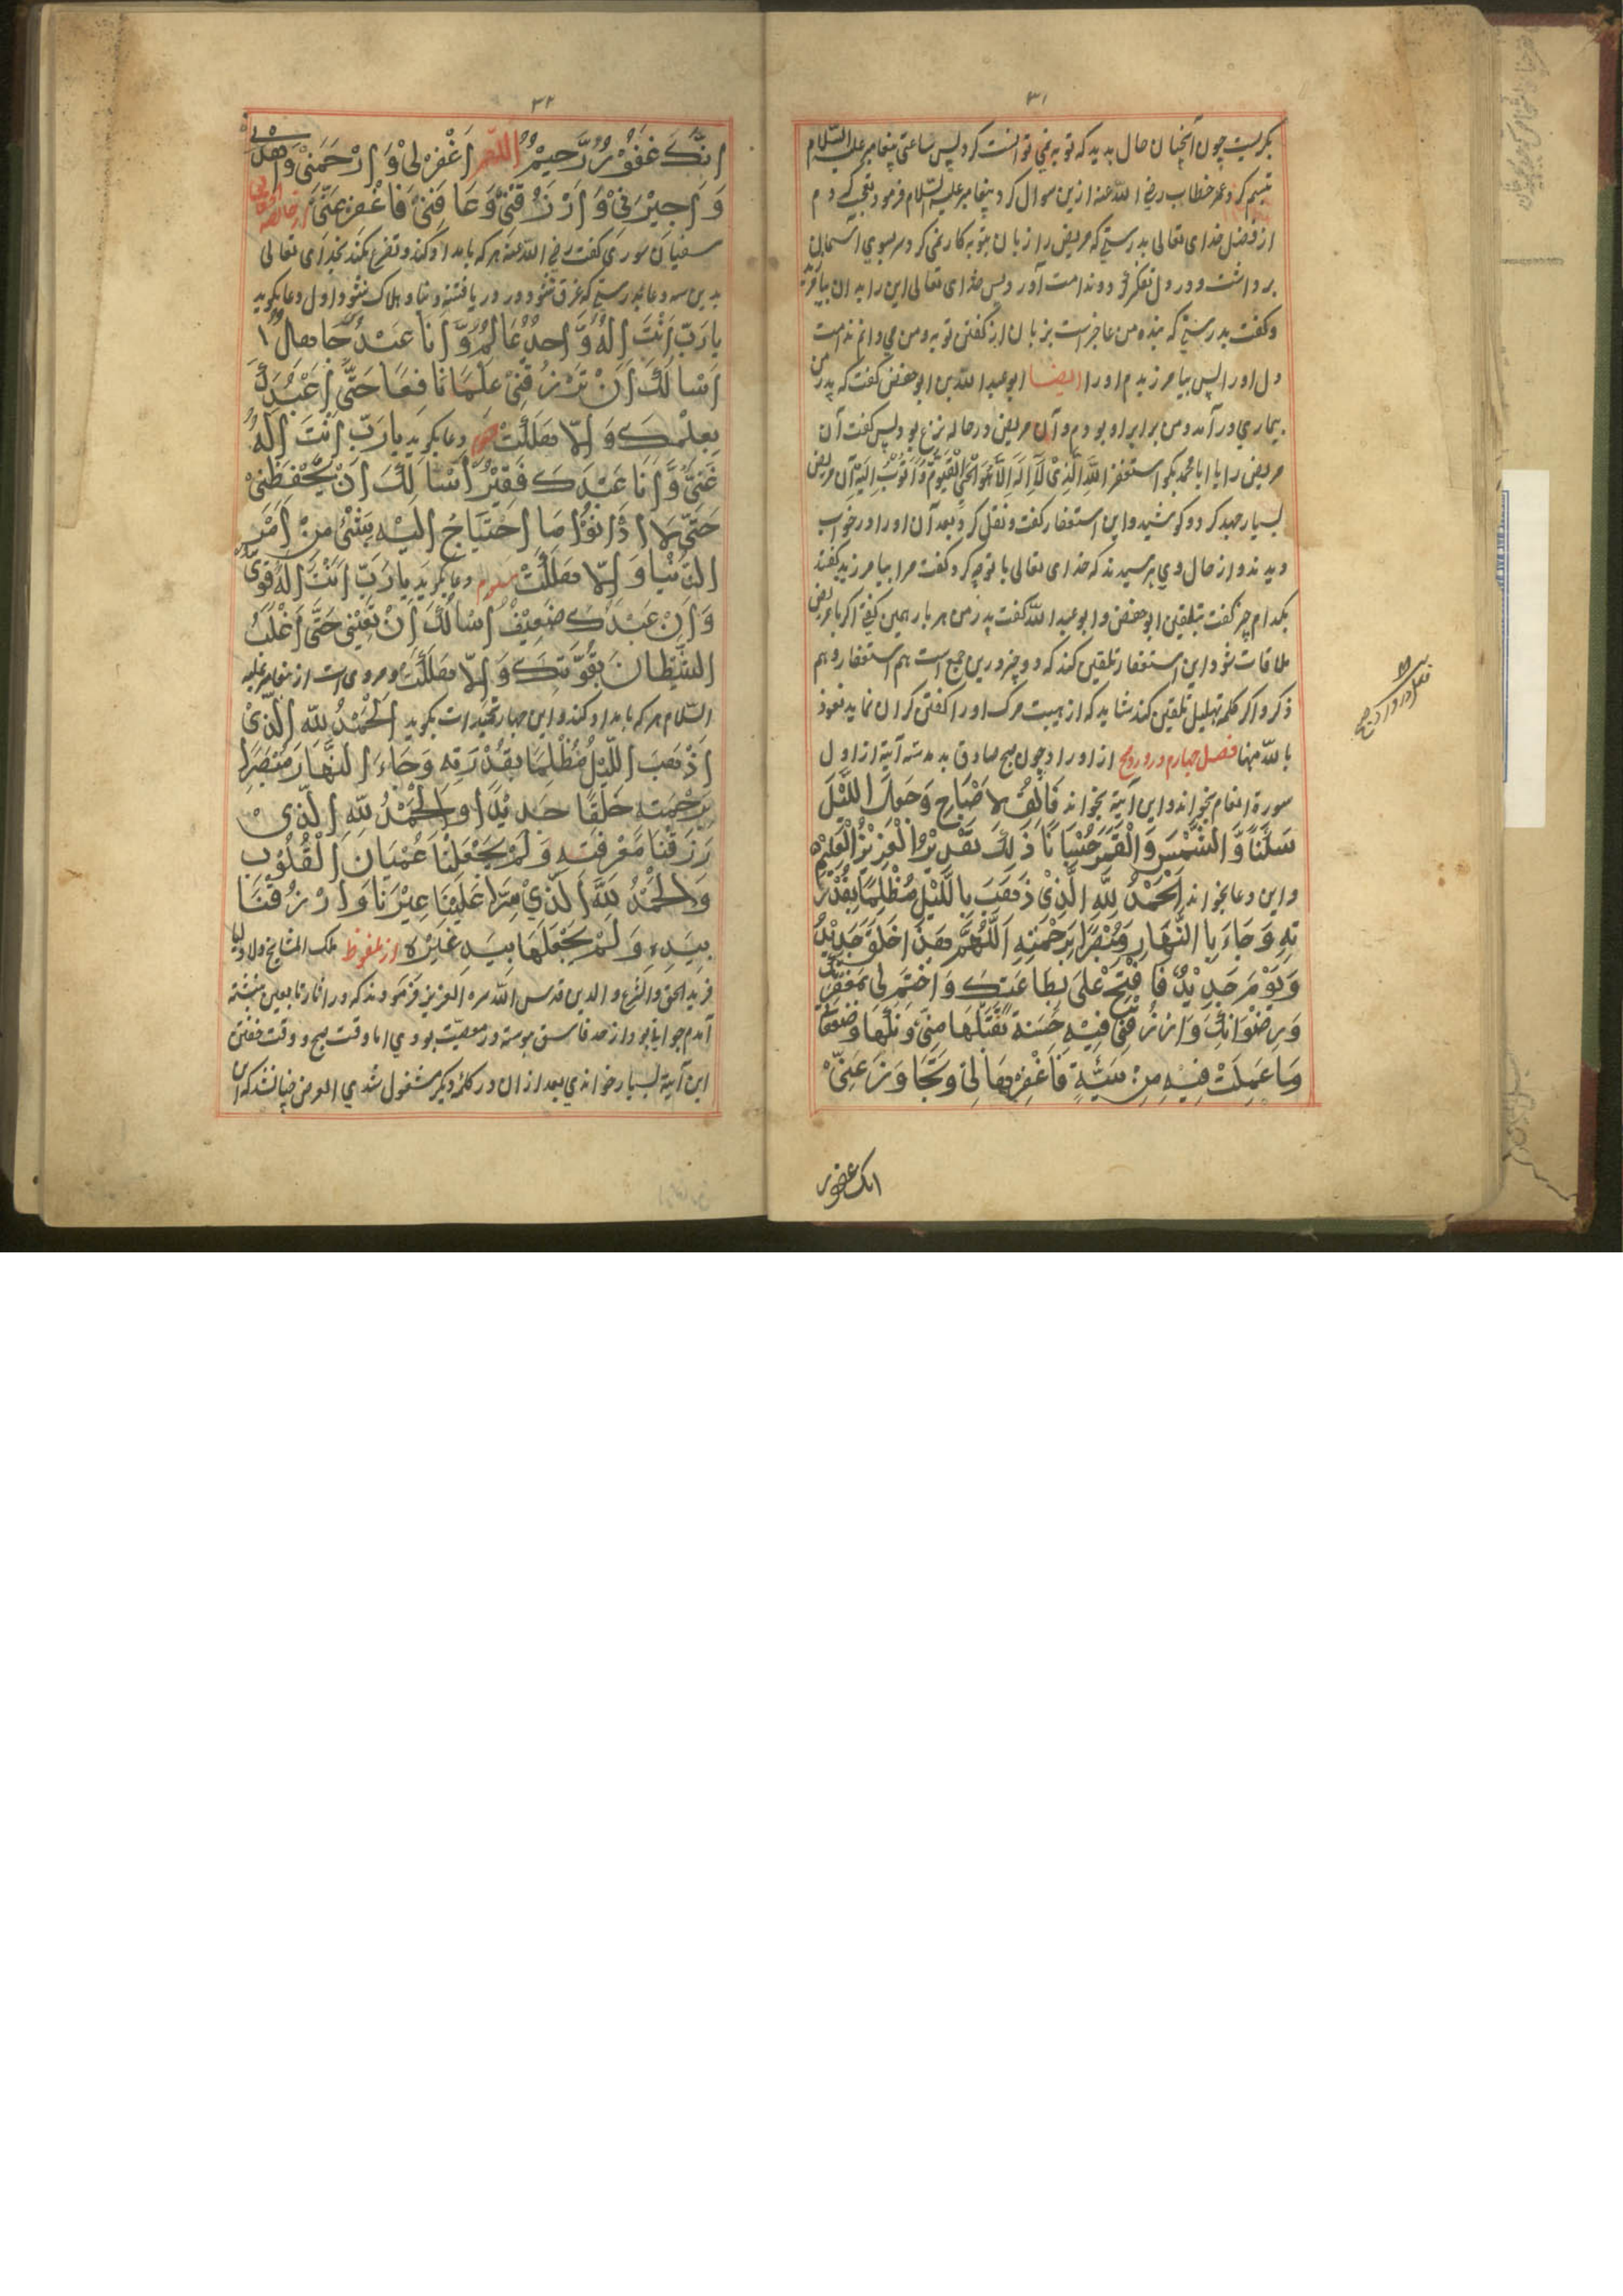 ۳۱
بگریست چون آنچنان حال پدید که توبه نمی توانست کرد پس ساعتی پیغامبر علیه السّلام
تبسم کرد عمر خطاب رضی الله عنه ازین سوال کرد پیغامبر علیه السّلام فرمود تعجب کردم
از فضل خدای تعالی بدرستی که مریض را زبان بتوبه کار نمی کرد سر بسوی آسمان
برداشت و در دل تفکر کرد و ندامت آورد پس خدای تعالی این را بدان بیامرزید
و گفت بدرستی که بنده من عاجز است بزبان از گفتن توبه و من می دانم ندامت
دل او را پس بیامرزیدم او را ایضا ابو عبد الله بن ابو حفص گفت که پدر من
بیماری درآمد و من برابر او بودم و آن مریض در حاله نزع بود پس گفت آن
مریض را یا ابا محمد بگو استغفر اللّٰه الّذی لا اله الّا هو الحیّ القیوم و اتوب الیه آن مریض
بسیار جهد کرد و کوشید و این استغفار گفت و نقل کرد بعد آن او را در خواب
دیدند و از حال وی پرسیدند که خدای تعالی با تو چه کرد گفت مرا بیامرزید گفتند
بکدام چیز گفت بتلقین ابو حفص و ابو عبد الله گفت پدر من هر بار همین گفتی اگر با مریض
ملاقات شود این استغفار تلقین کند که دو چیز درین جمع است هم استغفار و هم
ذکر و اگر کلمه تهلیل تلقین کند شاید که از هیبت مرگ او را گفتن گران نماید نعوذ
بالله منها فصل چهارم در ورد صبح از اوراد چون صبح صادق بدمد سه آیة از اول
سورة انعام بخواند و این آیة بخواند فَالِقُ الاِصْبَاحِ وَجَعَلَ اللَّیْلَ
سَکَنًا وَّ الشَّمْسَ وَالْقَمَرَ حُسْبَانًا ذٰلِكَ تَقْدِیْرُ الْعَزِیْزِ الْعَلِیْمِ
و این دعا بخواند اَلْحَمْدُ لِلّٰهِ الَّذِیْ ذَهَبَ بِاللَّیْلِ مُظْلِمًا بِقُدْرَ
تِهِ وَجَاءَ بِالنَّهَارِ مُبْصِرًا بِرَحْمَتِهِ اَللّٰهُمَّ هٰذَا خَلْقٌ جَدِیْدٌ
وَیَوْمٌ جَدِیْدٌ فَافْتَحْ عَلَیَّ بِطَاعَتِكَ وَاخْتِمْ لِی بِمَغْفِرَتِكَ
وَرِضْوَانِكَ وَارْزُقْنِی فِیْهِ حَسَنَةً تَقَبَّلْهَا مِنِّی وَزَکِّهَا وَضَعِّفْهَا
وَمَا عَمِلْتُ فِیْهِ مِنْ سَیِّئَةٍ فَاغْفِرْهَا لِی وَتَجَاوَزْ عَنِّیْ
انک غفور
۳۲
اِنَّكَ غَفُوْرٌ رَّحِیْمٌ اَللّٰهُمَّ اغْفِرْ لِیْ وَارْحَمْنِیْ وَاهْدِنِیْ
وَاجْبُرْنِیْ وَارْزُقْنِیْ وَعَافِنِیْ فَاعْفُ عَنِّیْ
سفیان ثوری گفت رضی الله عنه هر که بامداد کند و تضرع کند بخدای تعالی
بدین سه دعا بدرستی که غرق نشود در دریا فتنه دنیا و هلاک نشود اول دعا بگوید
یَا رَبِّ اَنْتَ اِلٰهٌ وَّاحِدٌ عَالِمٌ وَّ اَنَا عَبْدُكَ جَاهِلٌ
اَسْاَلُكَ اَنْ تَرْزُقَنِیْ عِلْمًا نَافِعًا حَتّٰی اَعْبُدَكَ
بِعِلْمِكَ وَاِلَّا هَلَکْتُ دعا بگوید یَا رَبِّ اَنْتَ اِلٰهٌ
غَنِیٌّ وَّ اَنَا عَبْدُكَ فَقِیْرٌ اَسْاَلُكَ اَنْ یَّحْفَظَنِیْ
حَتّٰی لَا اِحْتِیَاجُ اِلَیْهِ بِشَیْءٍ مِنْ اَمْرِ
الدُّنْیَا وَاِلَّا هَلَکْتُ سوم دعا بگوید یَا رَبِّ اَنْتَ اِلٰهٌ قَوِیٌّ
وَاَنَا عَبْدُكَ ضَعِیْفٌ اَسْاَلُكَ اَنْ تُعِیْنَنِی حَتّٰی اَغْلَبَ
الشَّیْطَانَ بِقُوَّتِكَ وَاِلَّا هَلَکْتُ و مروی است از پیغامبر علیه
السّلام هر که بامداد کند و این چهار تحمیدات بگوید اَلْحَمْدُ لِلّٰهِ الَّذِیْ
اَذْهَبَ اللَّیْلَ مُظْلِمًا بِقُدْرَتِهِ وَجَاءَ النَّهَارَ مُبْصِرًا
بِرَحْمَتِهِ خَلْقًا جَدِیْدًا وَالْحَمْدُ لِلّٰهِ الَّذِیْ
رَزَقَنَا مَعْرِفَتِهِ وَلَمْ یَجْعَلْنَا عُمْیَانَ الْقُلُوْبِ
وَالْحَمْدُ لِلّٰهِ الَّذِیْ
بِیَدِهِ وَلَمْ یَجْعَلْهَا بِیَدِ غَیْرِهِ از ملفوظ ملک المشایخ والاولیا
فرید الحق والشرع والدین قدس الله سره العزیز فرمودند که در آثار تابعین نبشته
آمدم جوانی بود از حد فاسق پیوسته در معصیت بودی اما وقت صبح و وقت خفتن
این آیة بسیار خواندی بعد از آن در کار دیگر مشغول شدی الغرض چنان شد که آن